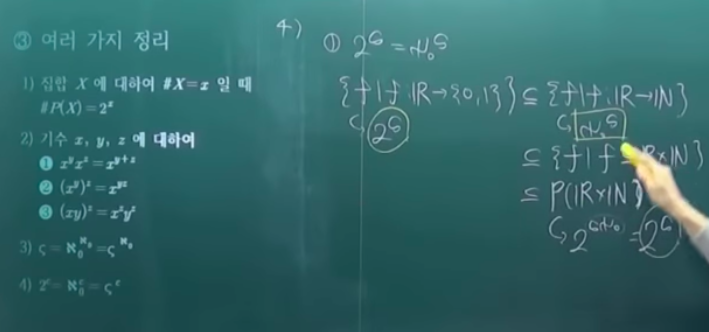 ③ 여러 가지 정리
1) 집합 X 에 대하여 #X=x 일 때
#P(X)=2ˣ
2) 기수 x, y, z 에 대하여
❶ xʸxᶻ=xʸ⁺ᶻ
❷ (xʸ)ᶻ=xʸᶻ
❸ (xy)ᶻ=xᶻyᶻ
3) ς=ℵ₀^ℵ₀=ς^ℵ₀
4) 2^ς=ℵ₀^ς=ς^ς
4)
① 2^ς=ℵ₀^ς
{f|f:ℝ→{0,1}} ⊆ {f|f:ℝ→ℕ}
2^ς ℵ₀^ς
⊆ {f|f ℝ×ℕ}
⊆ P(ℝ×ℕ)
2^ς×ℵ₀=2^ς